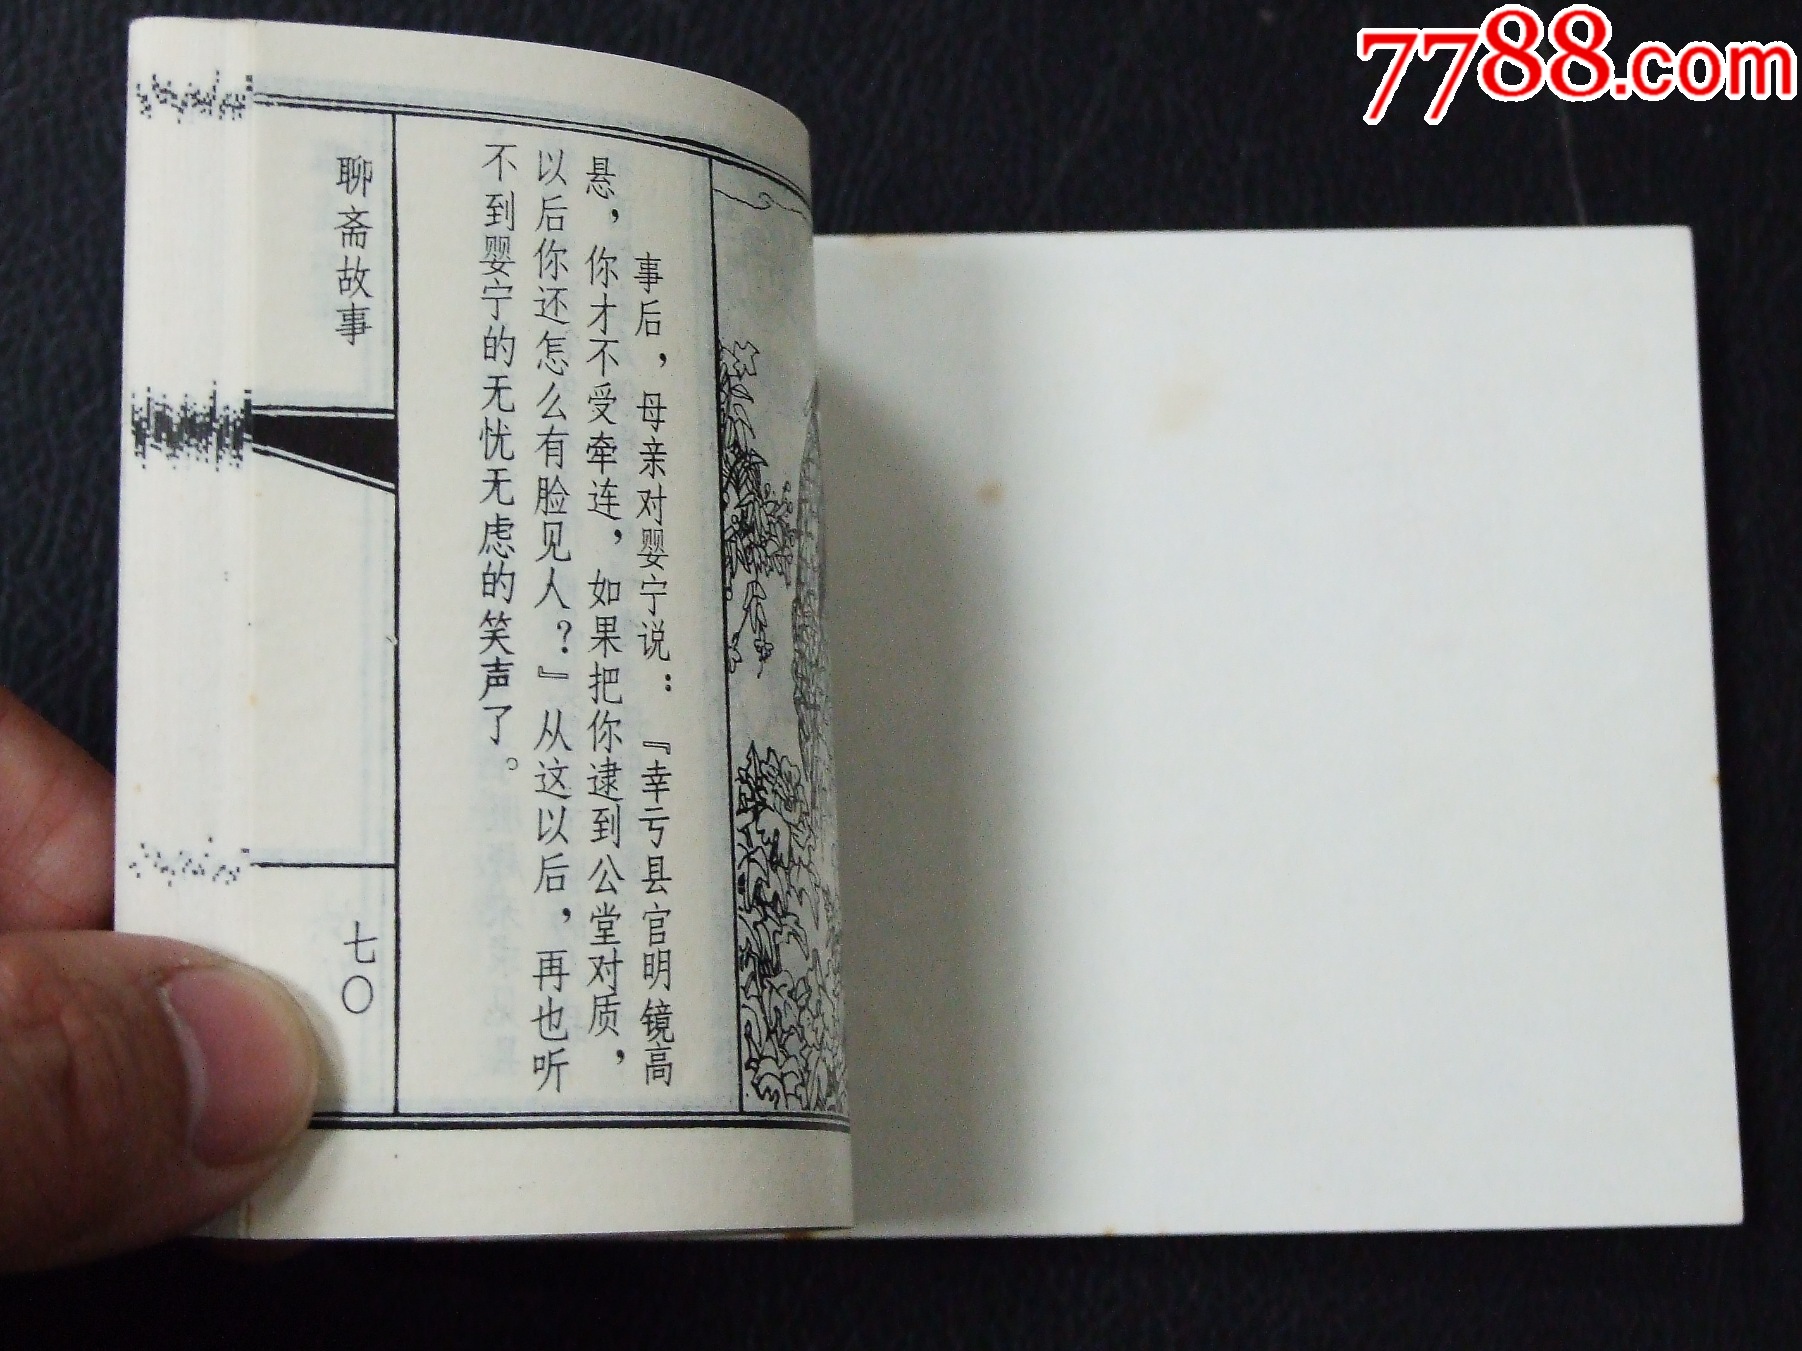 7788.com
事后，母亲对婴宁说：『幸亏县官明镜高
悬，你才不受牵连，如果把你逮到公堂对质，
以后你还怎么有脸见人？』从这以后，再也听
不到婴宁的无忧无虑的笑声了。
聊斋故事
七〇